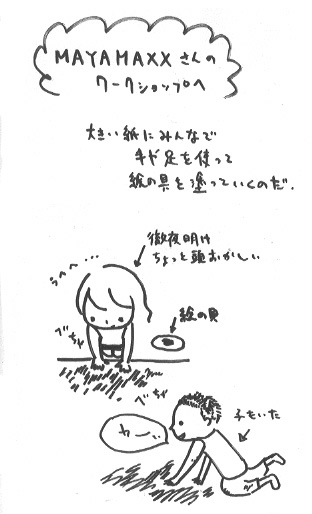 MAYAMAXXさんの
ワークショップへ
大きい紙にみんなで
手や足を使って
絵の具を塗っていくのだ.
徹夜明け
ちょっと頭おかしい
うへへ...
絵の具
べちゃ
べちゃ
子もいた